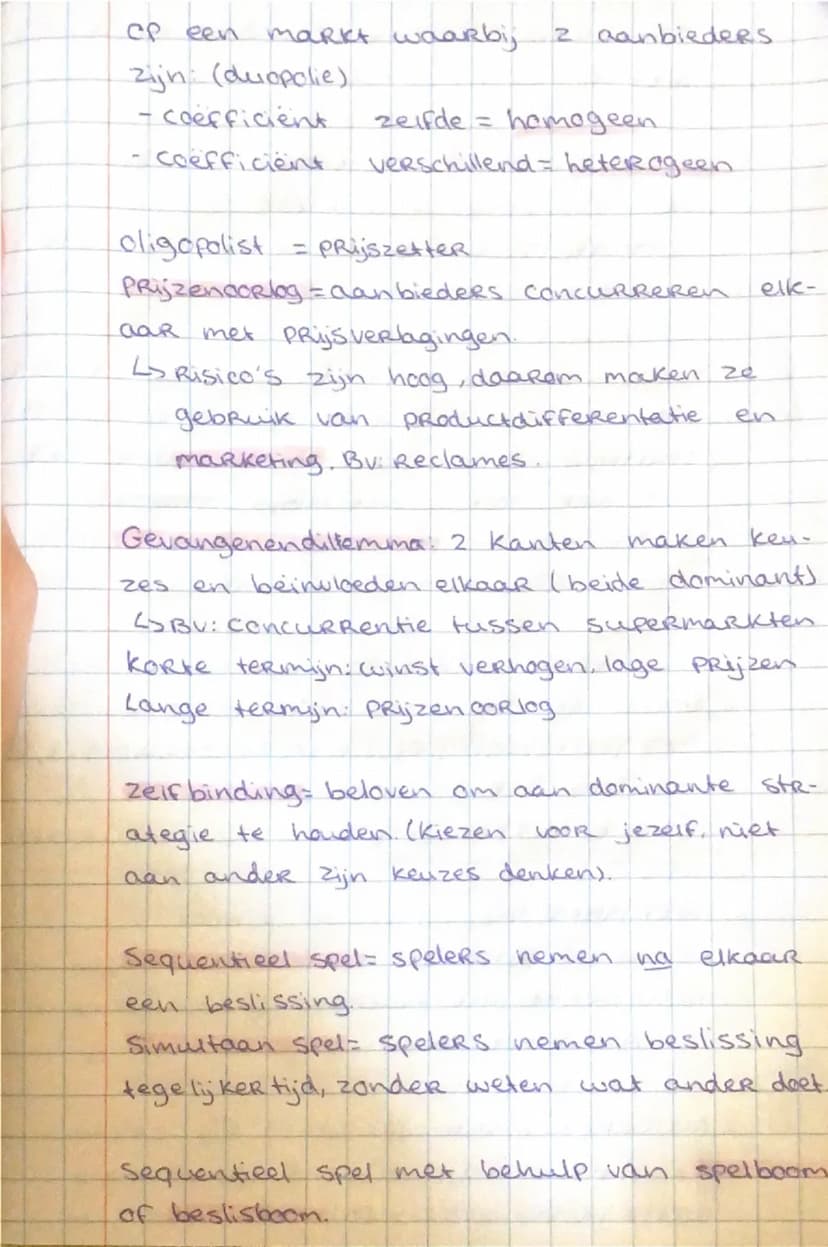 op een markt waarbij 2 aanbieders
zijn: (duopolie)
- coëfficiënt zelfde = homogeen
- coëfficiënt verschillend = heterogeen
oligopolist = prijszetter
prijzenoorlog = aanbieders concurreren elk-
aar met prijsverlagingen.
↳ Risico's zijn hoog, daarom maken ze
gebruik van productdifferentatie en
marketing. Bv: Reclames.
Gevangenendillemma: 2 kanten maken keu-
zes en beïnvloeden elkaar (beide dominant)
↳ Bv: concurrentie tussen supermarkten
korte termijn: winst verhogen, lage prijzen
Lange termijn: prijzenoorlog
zelfbinding = beloven om aan dominante str-
ategie te houden. (kiezen voor jezelf, niet
aan ander zijn keuzes denken).
Sequentieel spel = spelers nemen na elkaar
een beslissing.
Simultaan spel = spelers nemen beslissing
tegelijkertijd, zonder weten wat ander doet.
Sequentieel spel met behulp van spelboom
of beslisboom.